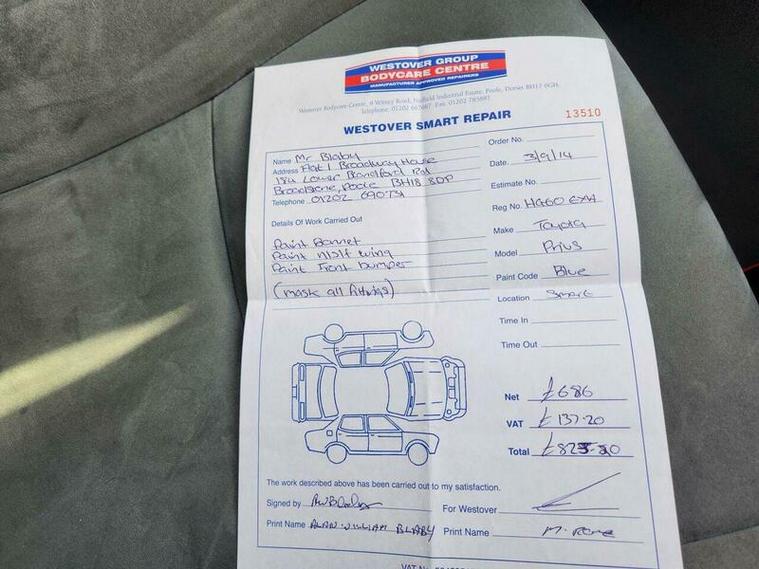 WESTOVER GROUP
BODYCARE CENTRE
MANUFACTURER APPROVED REPAIRERS
Westover Bodycare Centre, 9 Witney Road, Nuffield Industrial Estate, Poole, Dorset BH17 0GH.
Telephone: 01202 Fax: 01202
WESTOVER SMART REPAIR
13510
Name Mr Blaby
Address Flat 1 Broadway House
Lower Blandford Rd
Broadstone, Poole BH18 8DP
Telephone 01202
Order No.
Date. 3/9/14
Estimate No.
Reg No. HG60
Make Toyota
Model Prius
Paint Code Blue
Location Smart
Time In
Time Out
Details Of Work Carried Out
Paint Bonnet
Paint n/s/f wing
Paint Front bumper
(mask all fittings)
Net £686
VAT £137.20
Total
The work described above has been carried out to my satisfaction.
Signed by
For Westover
Print Name ALAN WILLIAM BLABY
Print Name M.
VAT